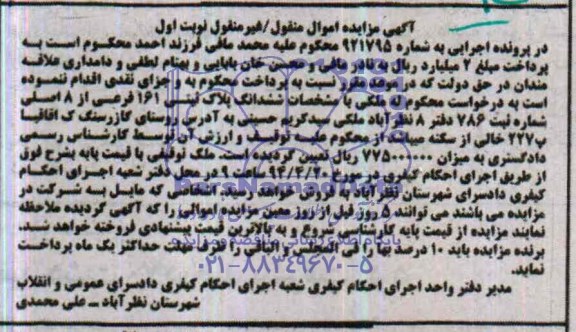 آگهی مزایده اموال منقول/غیرمنقول نوبت اول
در پرونده اجرایی به شماره ۹۲۱۷۹۵ محکوم علیه محمد مافی فرزند احمد محکوم است به
پرداخت مبلغ ۲ میلیارد ریال به نادر مافی و محسن خان بابایی و بهنام لطفی و دامداری علاقه
مندان در حق دولت که در موعد مقرر نسبت به پرداخت محکوم به و جزای نقدی اقدام ننموده
است به درخواست محکوم له ملکی با مشخصات ششدانگ پلاک ثبتی ۱۶۱ فرعی از ۸ اصلی
شماره ثبت ۷۸۶ دفتر ۸ نظرآباد ملکی سیدکریم حسینی به آدرس روستای گازرسنگ ک اقاقیا
پ۲۲۷ خالی از سکنه میباشد از محکوم علیه توقیف و ارزش آن توسط کارشناس رسمی
دادگستری به میزان ۷۷۵۰۰۰۰۰۰ ریال تعیین گردیده است. ملک توقیفی با قیمت پایه بشرح فوق
از طریق اجرای احکام کیفری در مورخ ۹۴/۴/۲۰ ساعت ۹ در محل دفتر شعبه اجرای احکام
کیفری دادسرای شهرستان نظرآباد به فروش خواهد رسید اشخاصی که مایل به شرکت در
مزایده می باشند می توانند ۵ روز قبل از روز معین مزایده اموالی را که آگهی گردیده ملاحظه
نمایند مزایده از قیمت پایه کارشناسی شروع و به بالاترین قیمت پیشنهادی فروخته خواهد شد.
برنده مزایده باید ۱۰ درصد بها را فی المجلس و مابقی را طی مهلت حداکثر یک ماه پرداخت
نماید.
۰۲۱-۸۸۳۴۹۶۷۰-۵
مدیر دفتر واحد اجرای احکام کیفری شعبه اجرای احکام کیفری دادسرای عمومی و انقلاب
شهرستان نظرآباد ــ علی محمدی